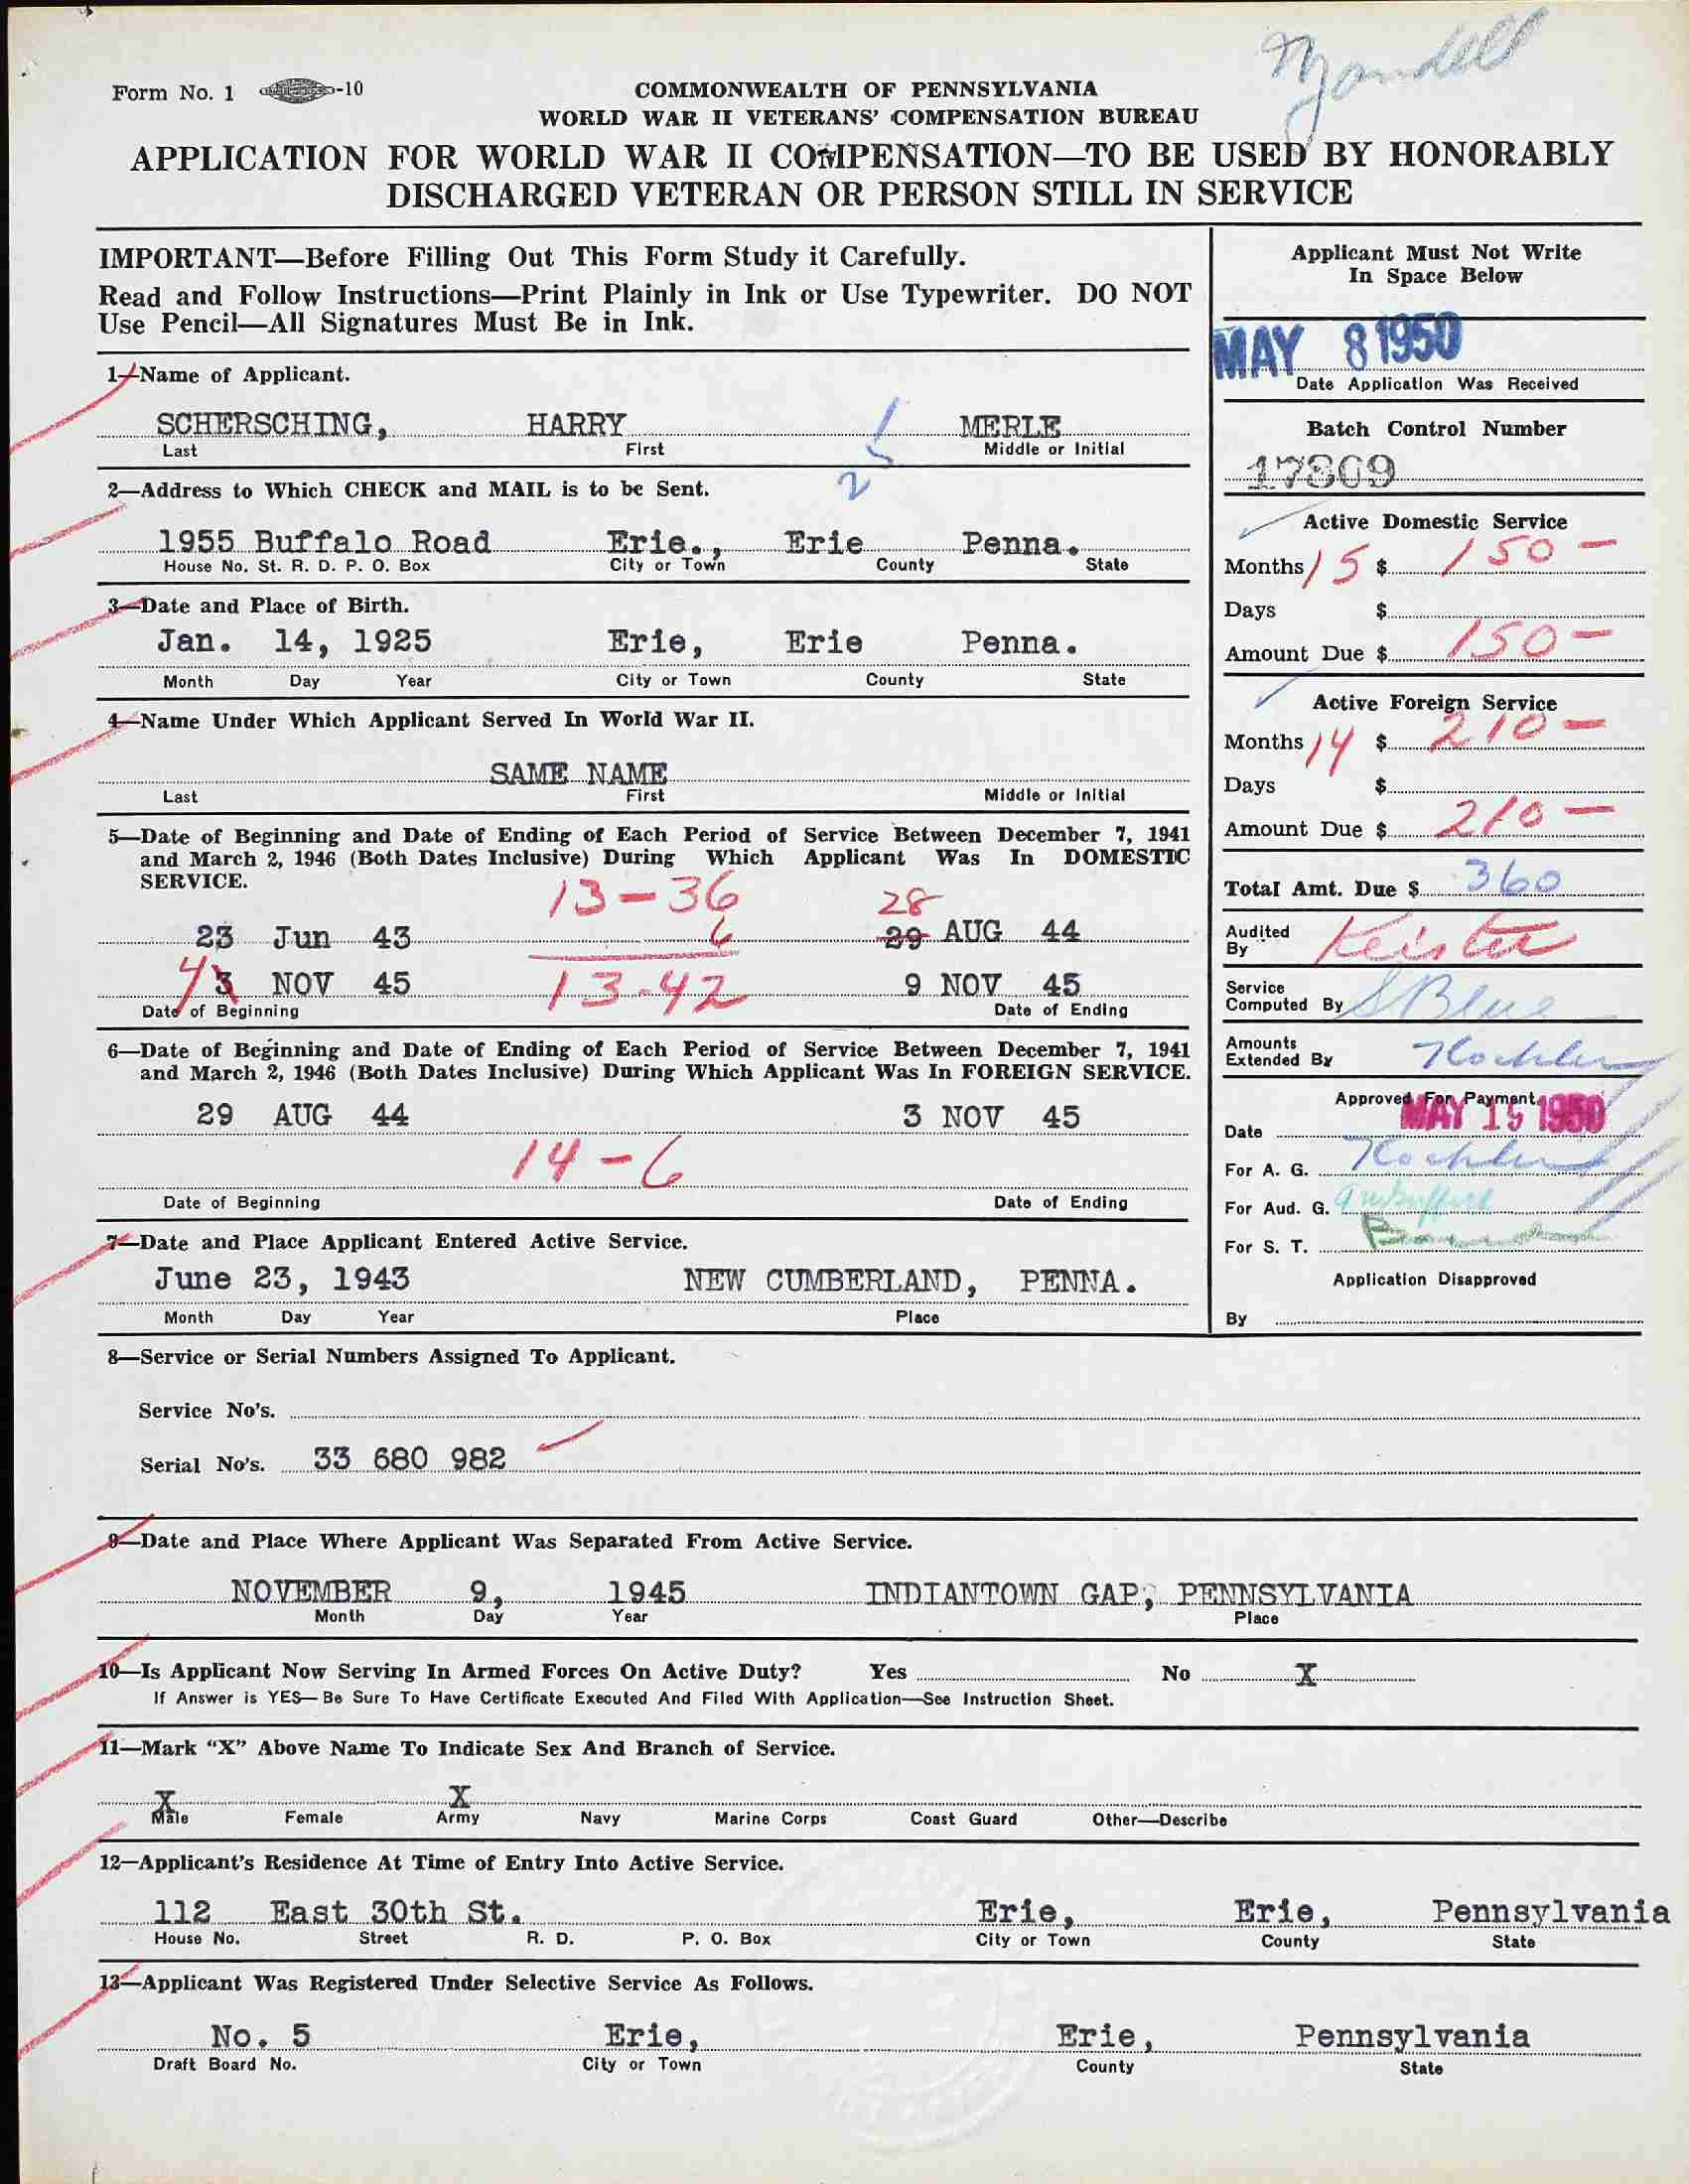 Mandell
Form No. 1 -10
COMMONWEALTH OF PENNSYLVANIA
WORLD WAR II VETERANS' COMPENSATION BUREAU
APPLICATION FOR WORLD WAR II COMPENSATION—TO BE USED BY HONORABLY
DISCHARGED VETERAN OR PERSON STILL IN SERVICE
IMPORTANT—Before Filling Out This Form Study it Carefully.
Read and Follow Instructions—Print Plainly in Ink or Use Typewriter. DO NOT
Use Pencil—All Signatures Must Be in Ink.
1—Name of Applicant.
SCHERSCHING, HARRY MERLE
Last First Middle or Initial
2—Address to Which CHECK and MAIL is to be Sent.
1955 Buffalo Road Erie., Erie Penna.
House No. St. R. D. P. O. Box City or Town County State
3—Date and Place of Birth.
Jan. 14, 1925 Erie, Erie Penna.
Month Day Year City or Town County State
4—Name Under Which Applicant Served In World War II.
SAME NAME
Last First Middle or Initial
5—Date of Beginning and Date of Ending of Each Period of Service Between December 7, 1941
and March 2, 1946 (Both Dates Inclusive) During Which Applicant Was In DOMESTIC
SERVICE.
13-36 28
23 Jun 43 6 29 AUG 44
4 3 NOV 45 13-42 9 NOV 45
Date of Beginning Date of Ending
6—Date of Beginning and Date of Ending of Each Period of Service Between December 7, 1941
and March 2, 1946 (Both Dates Inclusive) During Which Applicant Was In FOREIGN SERVICE.
29 AUG 44 3 NOV 45
14-6
Date of Beginning Date of Ending
7—Date and Place Applicant Entered Active Service.
June 23, 1943 NEW CUMBERLAND, PENNA.
Month Day Year Place
Applicant Must Not Write
In Space Below
MAY 8 1950
Date Application Was Received
Batch Control Number
17809
Active Domestic Service
Months 15 $ 150-
Days $
Amount Due $ 150-
Active Foreign Service
Months 14 $ 210-
Days $
Amount Due $ 210-
Total Amt. Due $ 360
Audited
By Keister
Service
Computed By S Blue
Amounts
Extended By
Approved For Payment
Date MAY 15 1950
For A. G.
For Aud. G.
For S. T.
Application Disapproved
By
8—Service or Serial Numbers Assigned To Applicant.
Service No's.
Serial No's. 33 680 982
9—Date and Place Where Applicant Was Separated From Active Service.
NOVEMBER 9, 1945 INDIANTOWN GAP, PENNSYLVANIA
Month Day Year Place
10—Is Applicant Now Serving In Armed Forces On Active Duty? Yes No X
If Answer is YES—Be Sure To Have Certificate Executed And Filed With Application—See Instruction Sheet.
11—Mark "X" Above Name To Indicate Sex And Branch of Service.
X X
Male Female Army Navy Marine Corps Coast Guard Other—Describe
12—Applicant's Residence At Time of Entry Into Active Service.
112 East 30th St. Erie, Erie, Pennsylvania
House No. Street R. D. P. O. Box City or Town County State
13—Applicant Was Registered Under Selective Service As Follows.
No. 5 Erie, Erie, Pennsylvania
Draft Board No. City or Town County State